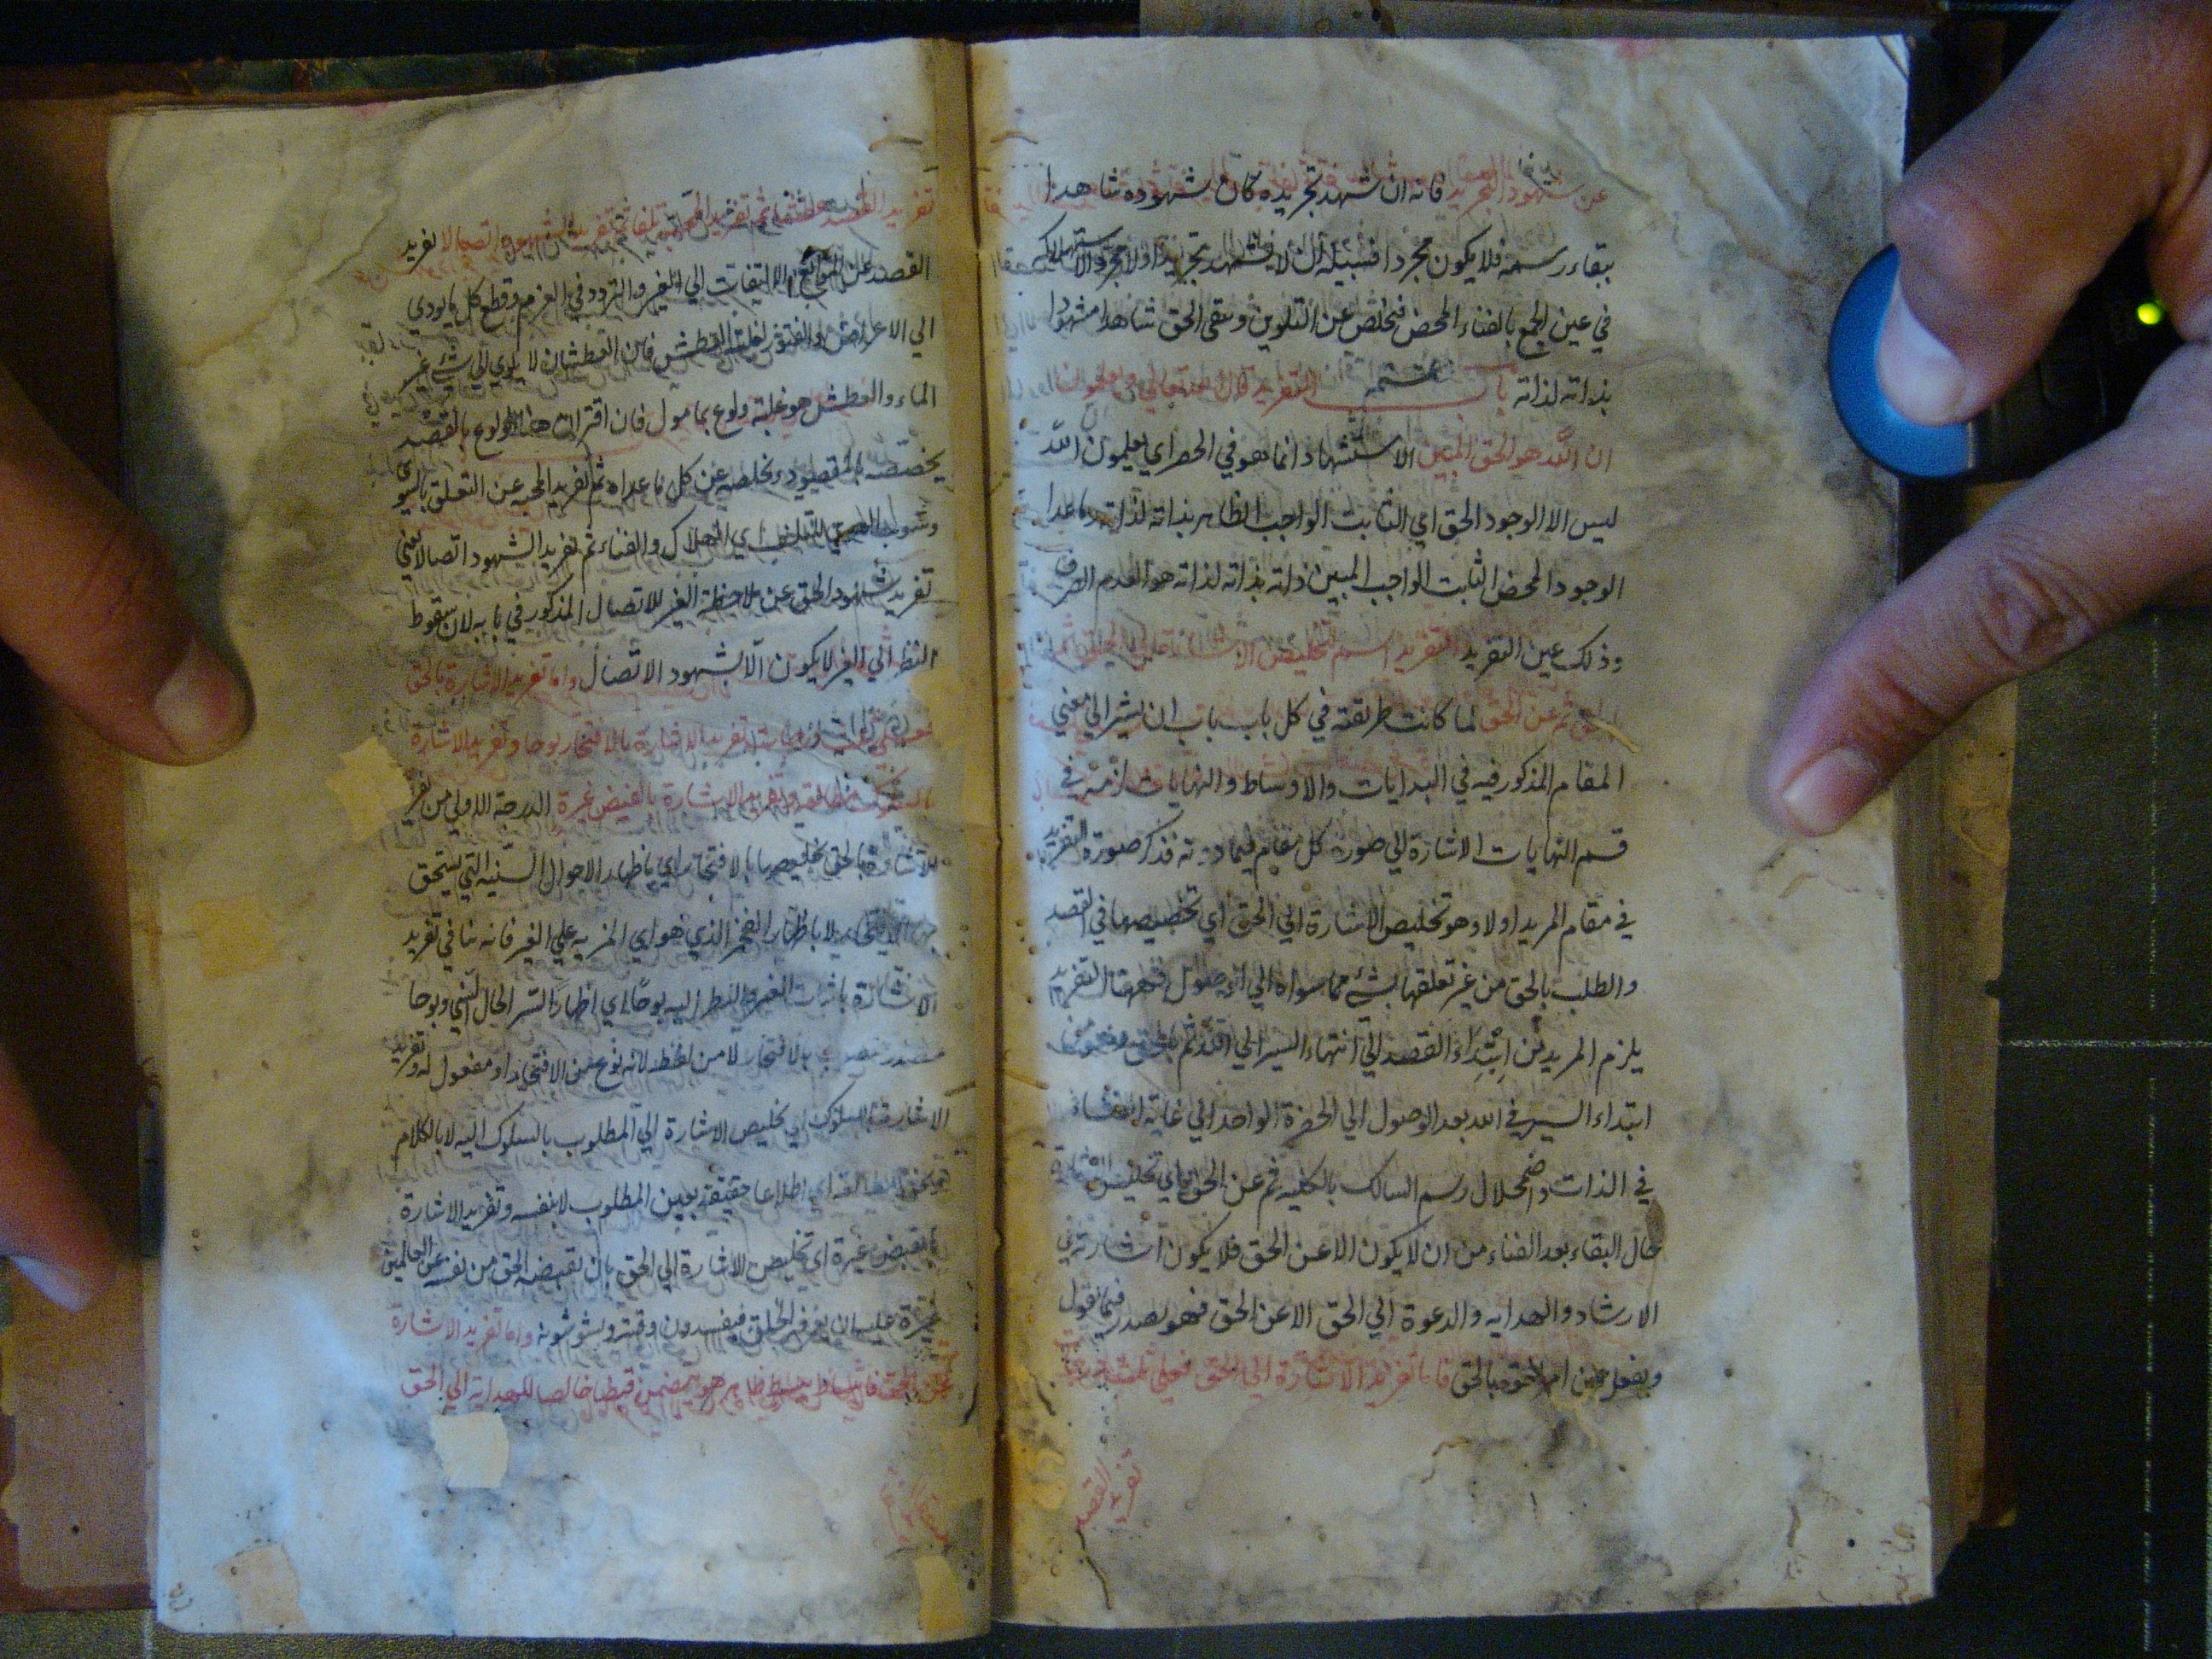 عن شهود التجريد فانه ان شهد تجريده كان شهوده شاهدا
ببقاء رسمه فلا يكون مجردا فسبيله ان لا يشهد تجريدا ولا مجردا
في عين الجمع بالفناء المحض فيخلص عن التلوين ويبقى الحق شاهدا مشهودا
بذاته لذاته باب التفريد قال الله تعالى ويعلمون
ان الله هو الحق المبين الاستشهاد انما هو في الحصر اي يعلمون ان الله
ليس الا الوجود الحق اي الثابت الواجب الظاهر بذاته لذاته وما عدا
الوجود المحض الثابت الواجب المبين ذاته بذاته لذاته هو العدم الصرف
وذلك عين التفريد التفريد اسم لتخليص الاشارة الى الحق ثم
بالحق ثم عن الحق لما كانت طريقته في كل باب باب ان يشير الي معني
المقام المذكور فيه في البدايات والاوساط والنهايات لزمه في
قسم النهايات الاشارة الي صورة كل مقام فيما دونه فذكر صورة التفريد
في مقام المريد اولا وهو تخليص الاشارة الي الحق اي تخصيصها في القصد
والطلب بالحق من غير تعلقها بشئ مما سواه الي الوصول فهذا التفريد
يلزم المريد من ابتداء القصد الي انتهاء السير الي الله ثم بالحق
ابتداء السير في الله بعد الوصول الي الحضرة الواحد الي غاية الفناء
في الذات واضمحلال رسم السالك بالكليه ثم عن الحق اي تخليص الاشارة
حال البقاء بعد الفناء من ان لا يكون الا عن الحق فلا يكون اشارته في
الارشاد والهدايه والدعوة الي الحق الا عن الحق فهو يصدر فيما يقول
ويفعل عن بالحق فاما تفريد الاشارة الي الحق فعلي ثلث
تفريد القصد
تفريد القصد عطشا ثم تفريد المحبة تلفا ثم تفريد الشهود اتصالا تفريد
القصد عن الالتفات الي الغير والتردد في العزم وقطع كل ما يودي
الي الاعراض والفتور لغلبة العطش فان العطشان لا يلوي الي شئ غير
الماء والعطش هو غلبة ولوع بمامول فان اقتران هذا الولوع بالقصد
يخصصه بالمقصود ويخلصه عن كل ما عداه ثم تفريد المحبة عن التعلق بالسوى
اي الهلاك والفناء ثم تفريد الشهود اتصالا يعني
تفريد شهود الحق عن ملاحظة الغير للاتصال المذكور في بابه لان سقوط
النظر الي الغير لا يكون الا بشهود الاتصال واما تفريد الاشارة بالحق
فعلي ثلث درجات تفريد الاشارة بالافتخار بوحا وتفريد الاشارة
بالسلوك مطالعة وتفريد الاشارة بالقبض غيرة الدرجة الاولي من تفريد
الاشارة بالحق تخليصها بالافتخار اي باظهار الاحوال السنية التي يستحق
لا باظهار الفخر الذي هو اي المزيه علي الغير فانه ينافي تفريد
الاشارة باثبات الغير والنظر اليه بوحا اي اظهارا لسر الحال السني وبوحا
مصدر نصب بالافتخار لا من لفظه لانه نوع من الافتخار او مفعول له وتفريد
الاشارة بالسلوك اي تخليص الاشارة الي المطلوب بالسلوك اليه لا بالكلام
مطالعة اي اطلاعا حقيقة بعين المطلوب لا بنفسه وتفريد الاشارة
بالقبض غيرة اي تخليص الاشارة الي الحق بان يقبضه الحق من نفسه عن العالمين
غيرة عليه ان يعرفه الخلق فيفسدون وقته ويشوشونه واما تفريد الاشارة
عن الحق فانبساط ببسط ظاهر هو يتضمن قبضا خالصا للهداية الي الحق